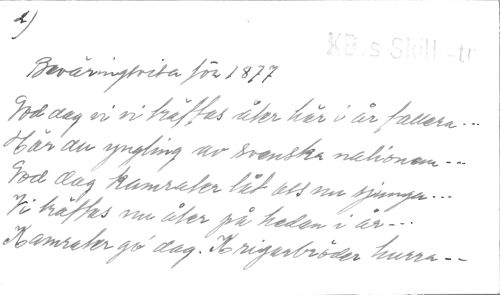 2)
KB.s Skill -tr
Beväringsvisa för 1877
God dag vi vi träffas åter här i år fallera ---
Hör du yngling av svenska nationen ---
God dag kamrater låt oss nu sjunga ---
Vi träffas nu åter på hedan i år ---
Kamrater go' dag. Krigarbröder hurra ---